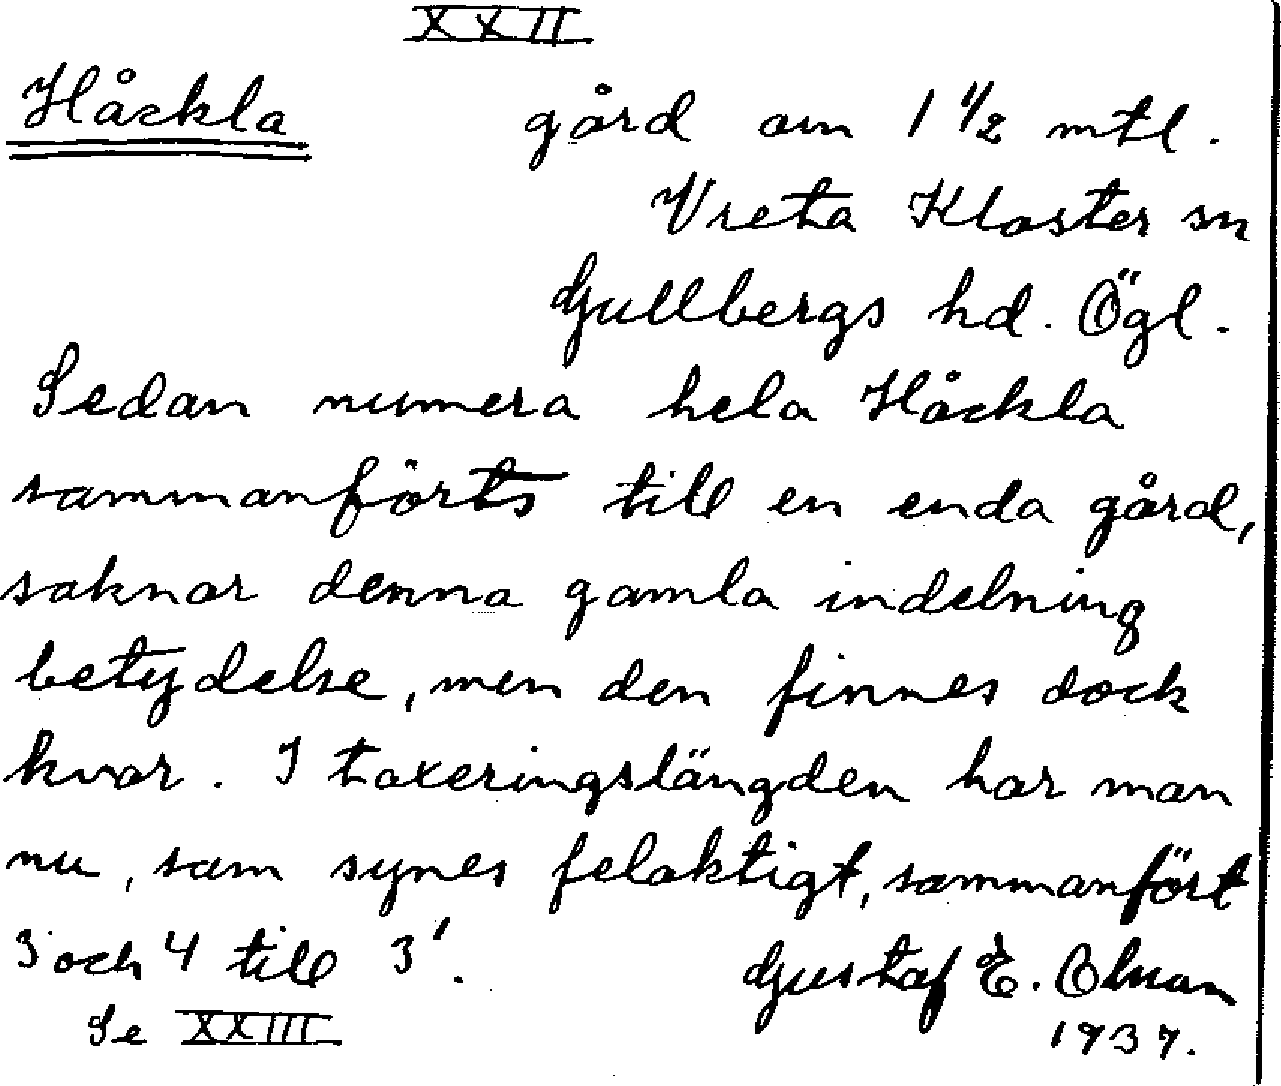 XXII
Håckla gård om 1 1/2 mtl.
Vreta Kloster sn
Gullbergs hd. Ögl.
Sedan numera hela Håckla
sammanförts till en enda gård,
saknar denna gamla indelning
betydelse, men den finnes dock
kvar. I taxeringslängden har man
nu, som synes felaktigt, sammanfört
3 och 4 till 3'.
Gustaf E.
Se XXIII
1937.